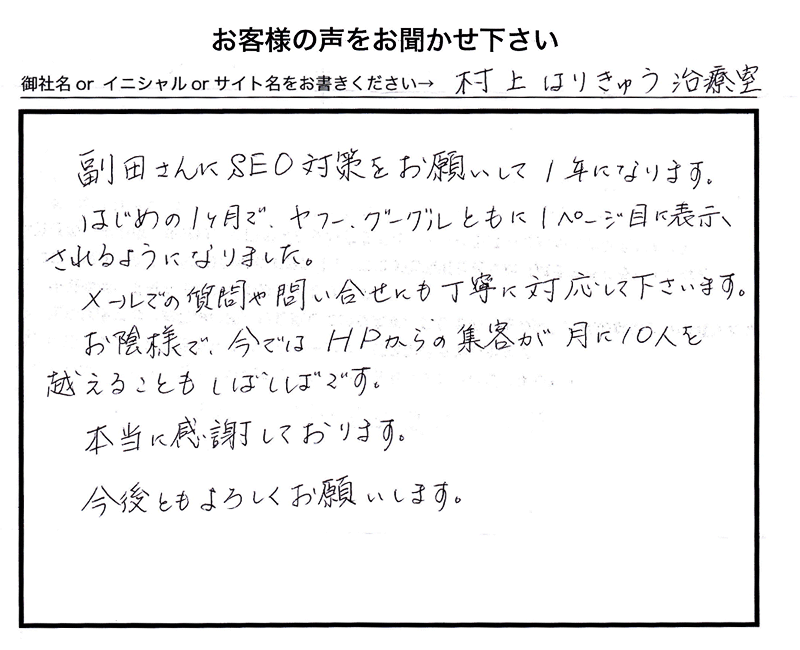 お客様の声をお聞かせ下さい
御社名 or イニシャル or サイト名をお書きください→ 村上はりきゅう治療室
副田さんにSEO対策をお願いして1年になります。
はじめの1ヶ月で、ヤフー、グーグルともに1ページ目に表示
されるようになりました。
メールでの質問や問い合せにも丁寧に対応して下さいます。
お陰様で、今ではHPからの集客が月に10人を
越えることもしばしばです。
本当に感謝しております。
今後ともよろしくお願いします。